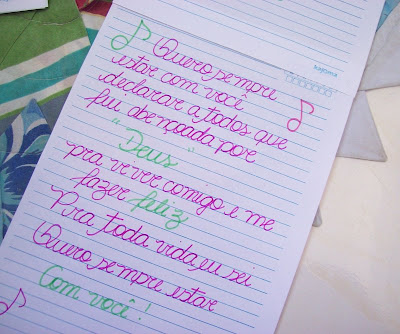 kajoma
Quero sempre
estar com você
declarar a todos que
fui abençoada por
"Deus"
pra viver comigo e me
fazer feliz
Pra toda vida eu sei
Quero sempre estar
Com você!